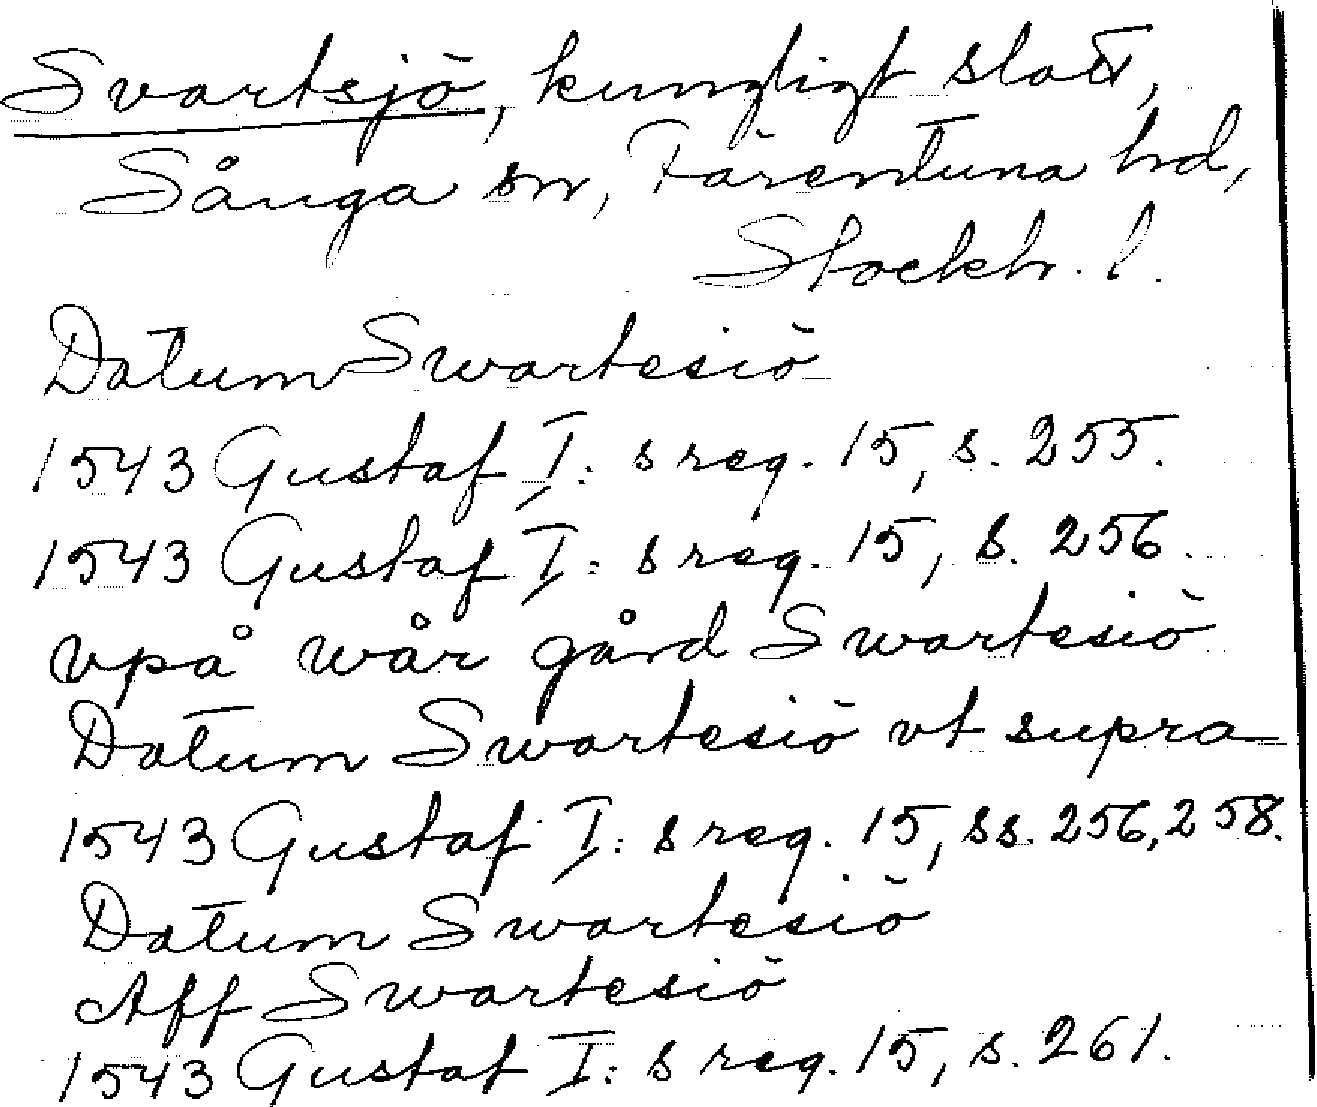 Svartsjö, kungligt slott,
Sånga sn, Färentuna hd,
Stockh. l.
Datum Swartesiö
1543 Gustaf I:s reg. 15, s. 255.
1543 Gustaf I:s reg. 15, s. 256.
vpå wår gård Swartesiö
Datum Swartesiö vt supra
1543 Gustaf I:s reg. 15, ss. 256, 258.
Datum Swartesiö
Aff Swartesiö
1543 Gustaf I:s reg. 15, s. 261.